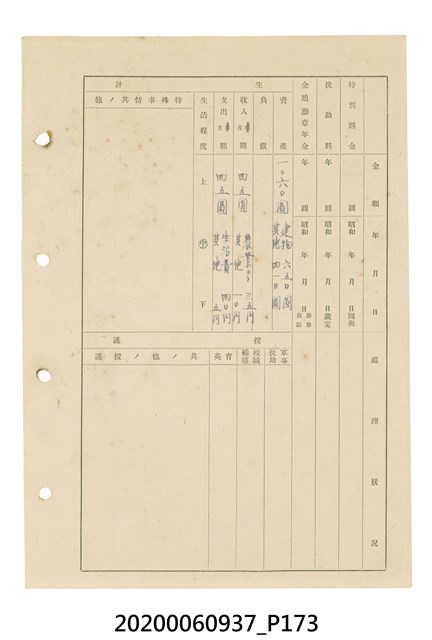 金額 年月日 處理狀況
特別賜金 圓 昭和 年 月 日賜與
扶助料 年 圓 昭和 年 月 日裁定
金鵄勳章年金 年 圓 昭和 年 月 日
生計
資產 一〇六〇圓 建物 六五〇圓 其他 四一〇圓
負債
收入 月額 四五圓 三五円 其ノ他 一〇円
支出 月額 四五圓 生活費 四〇円 其他 五円
生活程度 上 中 下
特殊事情其ノ他
援護
軍事扶助
授職輔導
育英
其ノ他ノ援護
20200060937_P173